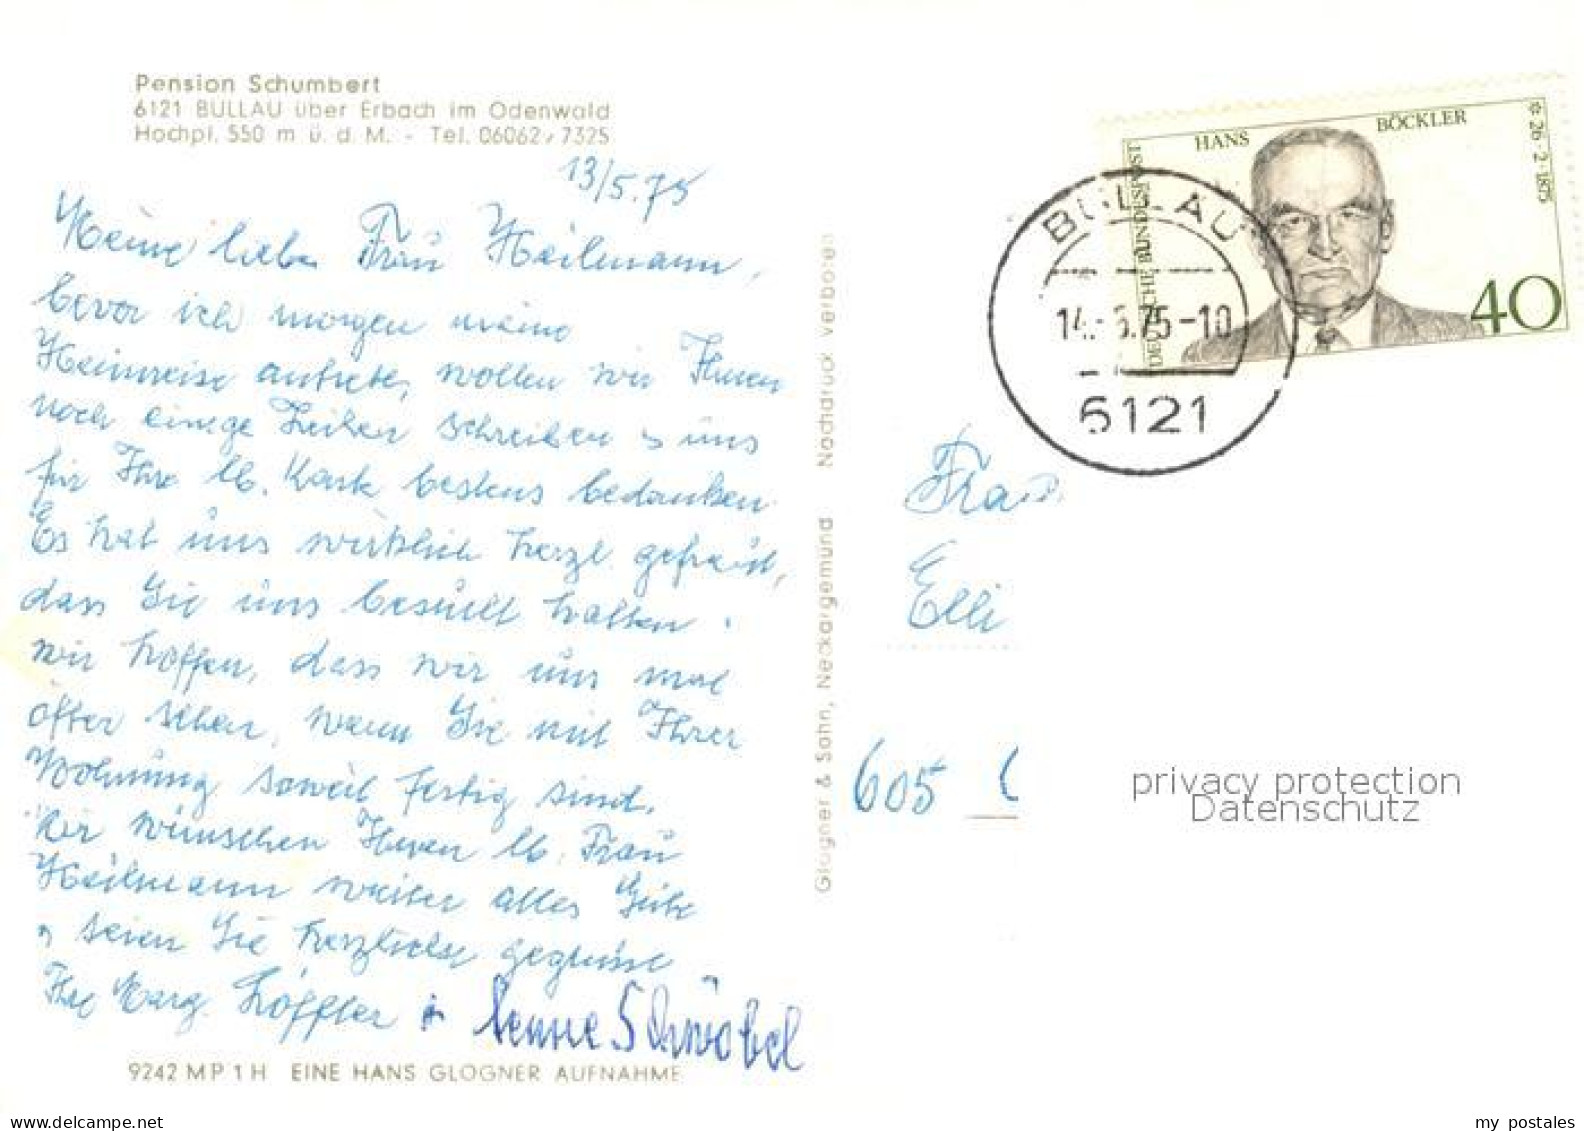 Pension Schumbert
6121 BULLAU über Erbach im Odenwald
Hochpl. 550 m ü. d. M. - Tel. 06062/7325
13/5.75
Meine liebe Frau Heilmann,
bevor ich morgen meine
Heimreise antrete, wollen wir Ihnen
noch einige Zeilen schreiben u uns
für Ihre lb. Karte bestens bedanken.
Es hat uns wirklich herzl. gefreut,
dass Sie uns besucht hatten.
Wir hoffen, dass wir uns mal
öfter sehen, wenn Sie mit Ihrer
Wohnung soweit fertig sind.
Wir wünschen Ihnen lb. Frau
Heilmann weiter alles Gute
u seien Sie herzlichst gegrüsst
Ihre Marg. Löffler +
Schwöbel
9242 MP 1 H EINE HANS GLOGNER AUFNAHME
Glogner & Sohn, Neckargemünd Nachdruck verboten
DEUTSCHE BUNDESPOST
HANS BÖCKLER
* 26·2·1875
40
BULLAU
14.-5.75-10
6121
Frau
Elli
605
privacy protection
Datenschutz
www.delcampe.net
my postales